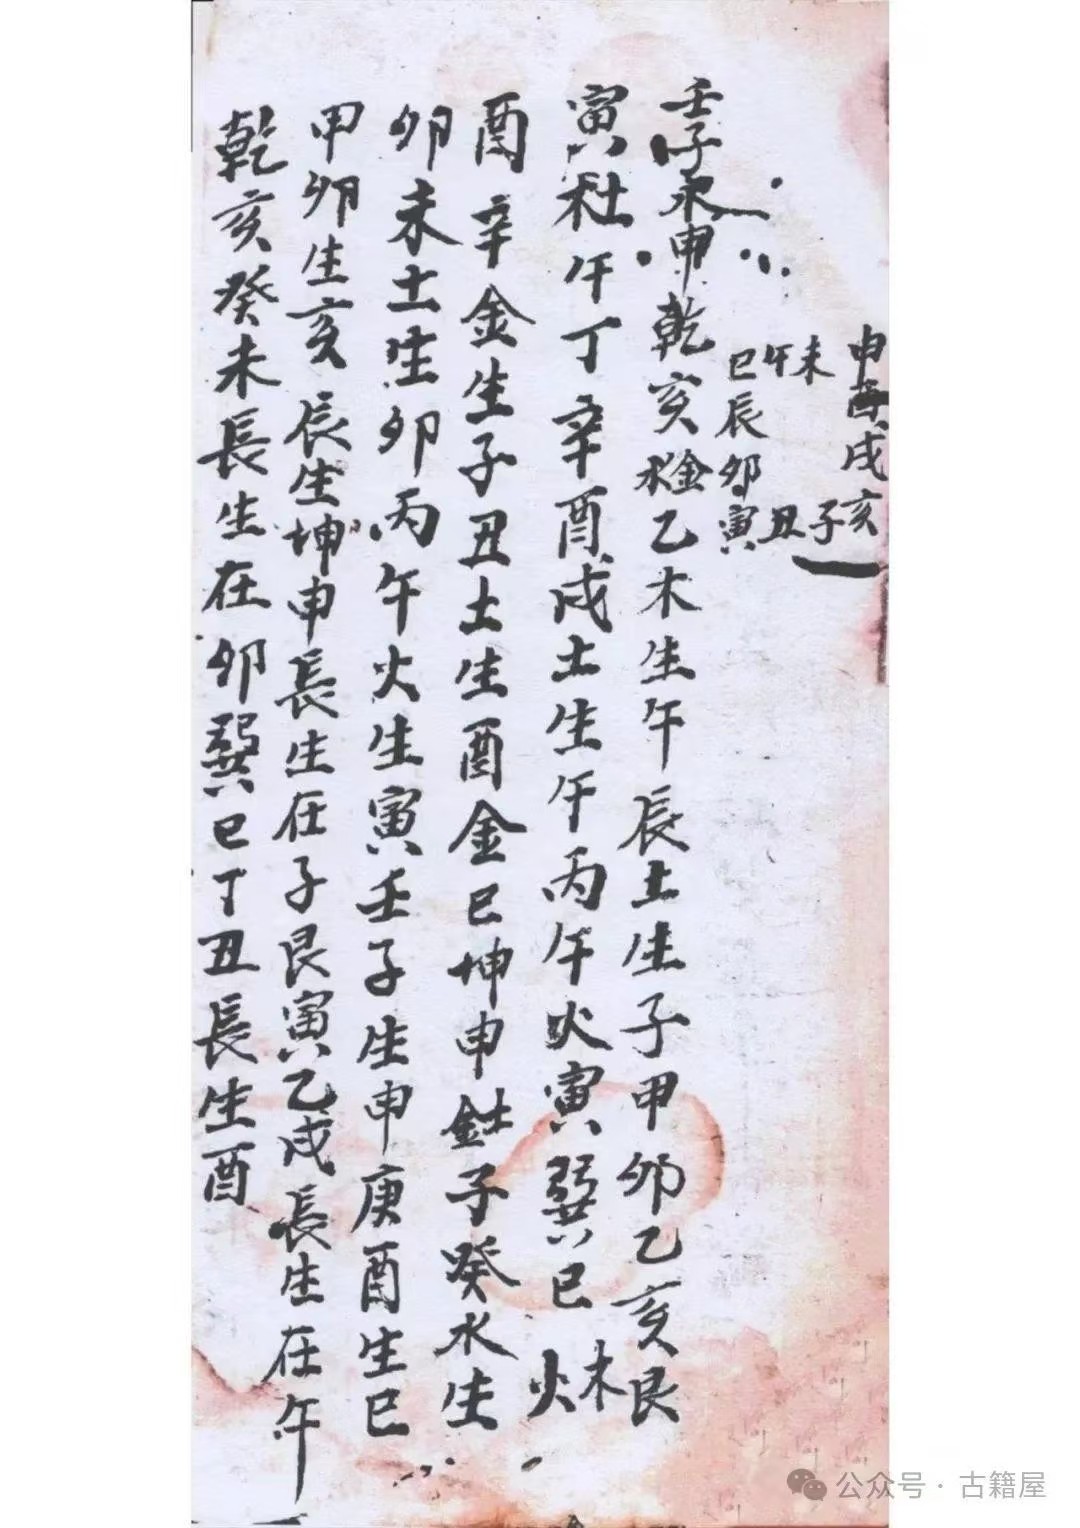 申酉戌亥
未午
巳辰卯寅
子丑
壬子水申乾亥金水乙木生午辰土生子甲卯乙亥艮
寅杜午丁辛酉戌土生午丙午火寅巽巳木火
酉辛金生子丑土生酉金巳坤申釷子癸水生
卯未土生卯丙午火生寅壬子生申庚酉生巳
甲卯生亥辰生坤申長生在子艮寅乙戌長生在午
乾亥癸未長生在卯巽巳丁丑長生酉
公众号 · 古籍屋